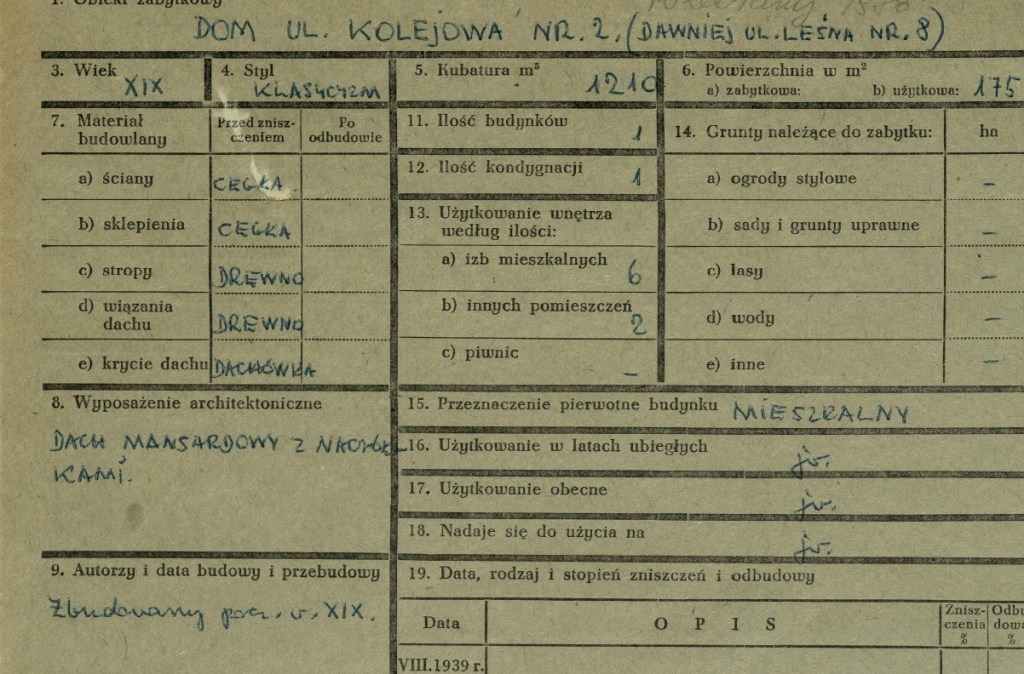 1. Obiekt zabytkowy
DOM UL. KOLEJOWA NR. 2. (DAWNIEJ UL. LEŚNA NR. 8)
3. Wiek XIX
4. Styl KLASYCYZM
5. Kubatura m³ 1210
6. Powierzchnia w m²
a) zabytkowa: b) użytkowa: 175
7. Materiał budowlany
Przed zniszczeniem
Po odbudowie
a) ściany CEGŁA
b) sklepienia CEGŁA
c) stropy DREWNO
d) wiązania dachu DREWNO
e) krycie dachu DACHÓWKA
11. Ilość budynków 1
12. Ilość kondygnacji 1
13. Użytkowanie wnętrza
według ilości:
a) izb mieszkalnych 6
b) innych pomieszczeń 2
c) piwnic –
14. Grunty należące do zabytku: ha
a) ogrody stylowe –
b) sady i grunty uprawne –
c) lasy –
d) wody –
e) inne –
8. Wyposażenie architektoniczne
DACH MANSARDOWY Z NACZÓŁ-
KAMI.
9. Autorzy i data budowy i przebudowy
Zbudowany pocz. w. XIX.
15. Przeznaczenie pierwotne budynku MIESZKALNY
16. Użytkowanie w latach ubiegłych jw.
17. Użytkowanie obecne jw.
18. Nadaje się do użycia na jw.
19. Data, rodzaj i stopień zniszczeń i odbudowy
Data
OPIS
Znisz-
czenia
%
Odbu
dowa
%
VIII.1939 r.